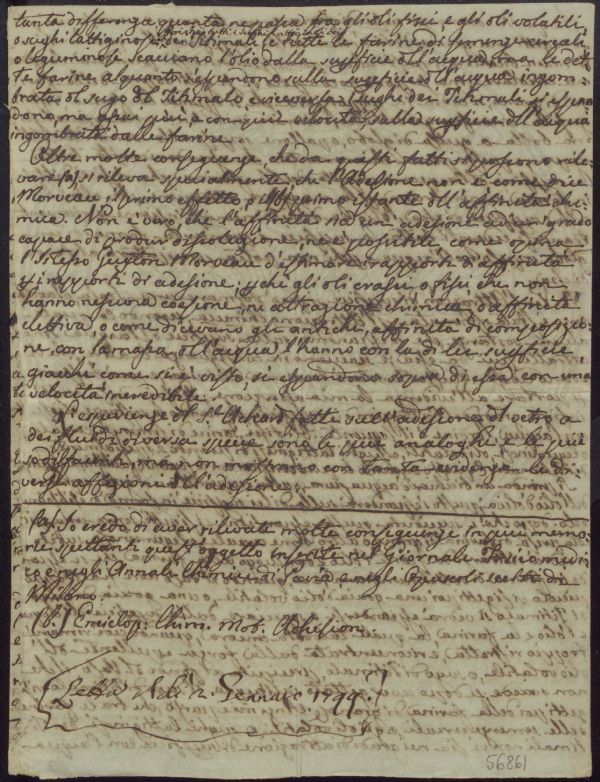 tanta differenza quanta ne passa fra gli oli fissi e gli oli volatili
o sughi lattiginosi dei Titimali e tutte le farine di semenze cereali
o leguminose scacciano l'olio dalla superficie dell'acqua, ma le det-
te farine alquanto si espandono sulla superficie dll'acqua ingom-
brata dl sugo dl Titimalo, e viceversa i sughi dei Titimali si espan
dono, ma assai più e con più velocità, sulla superficie dll'acqua
ingombrata dalle farine.
Oltre molte conseguenze, che da questi fatti si possono rile-
vare (a), si rileva specialmente che l'Adesione non è come dice
Morveau il primo effetto o il primo istante dll'affinità chi-
mica. Non è vero, che l'affinità sia un'adesione ad un grado
capace di produr dissoluzione, nè è possibile, come opina
l'istesso Guyton Morveau d'estimare i rapporti di affinità
pei rapporti di adesione, pchè gli oli crassi o fissi, che non
hanno nessuna coesione, nè attrazione chimica d'affinità
elettiva, o come dicevano gli antichi, affinità di composizio-
ne, con la massa dll'acqua l'hanno con la di lei superficie
giacchè come si è visto, si espandono sopra di essa con una
velocità incredibile.
L'esperienze dl S.r Achard fatte sull'adesione dl vetro a
dei fluidi diversa specie sono le più analoghe e le più
sodisfacenti, ma non mostrano con tanta evidenza le di-
verse affezioni dll'adesione.
(a) Io credo di aver rilevate molte conseguenze in più memo-
rie spettanti quest'oggetto inserite nel Giornale Fisico medi
co e negli Annali Chimici di Pavia e negli Opuscoli scelti di
Milano.
(b.) Enciclop: Chim. Mot. Adhesion
(Letta Adì 12. Gennaio 1797.)
56861